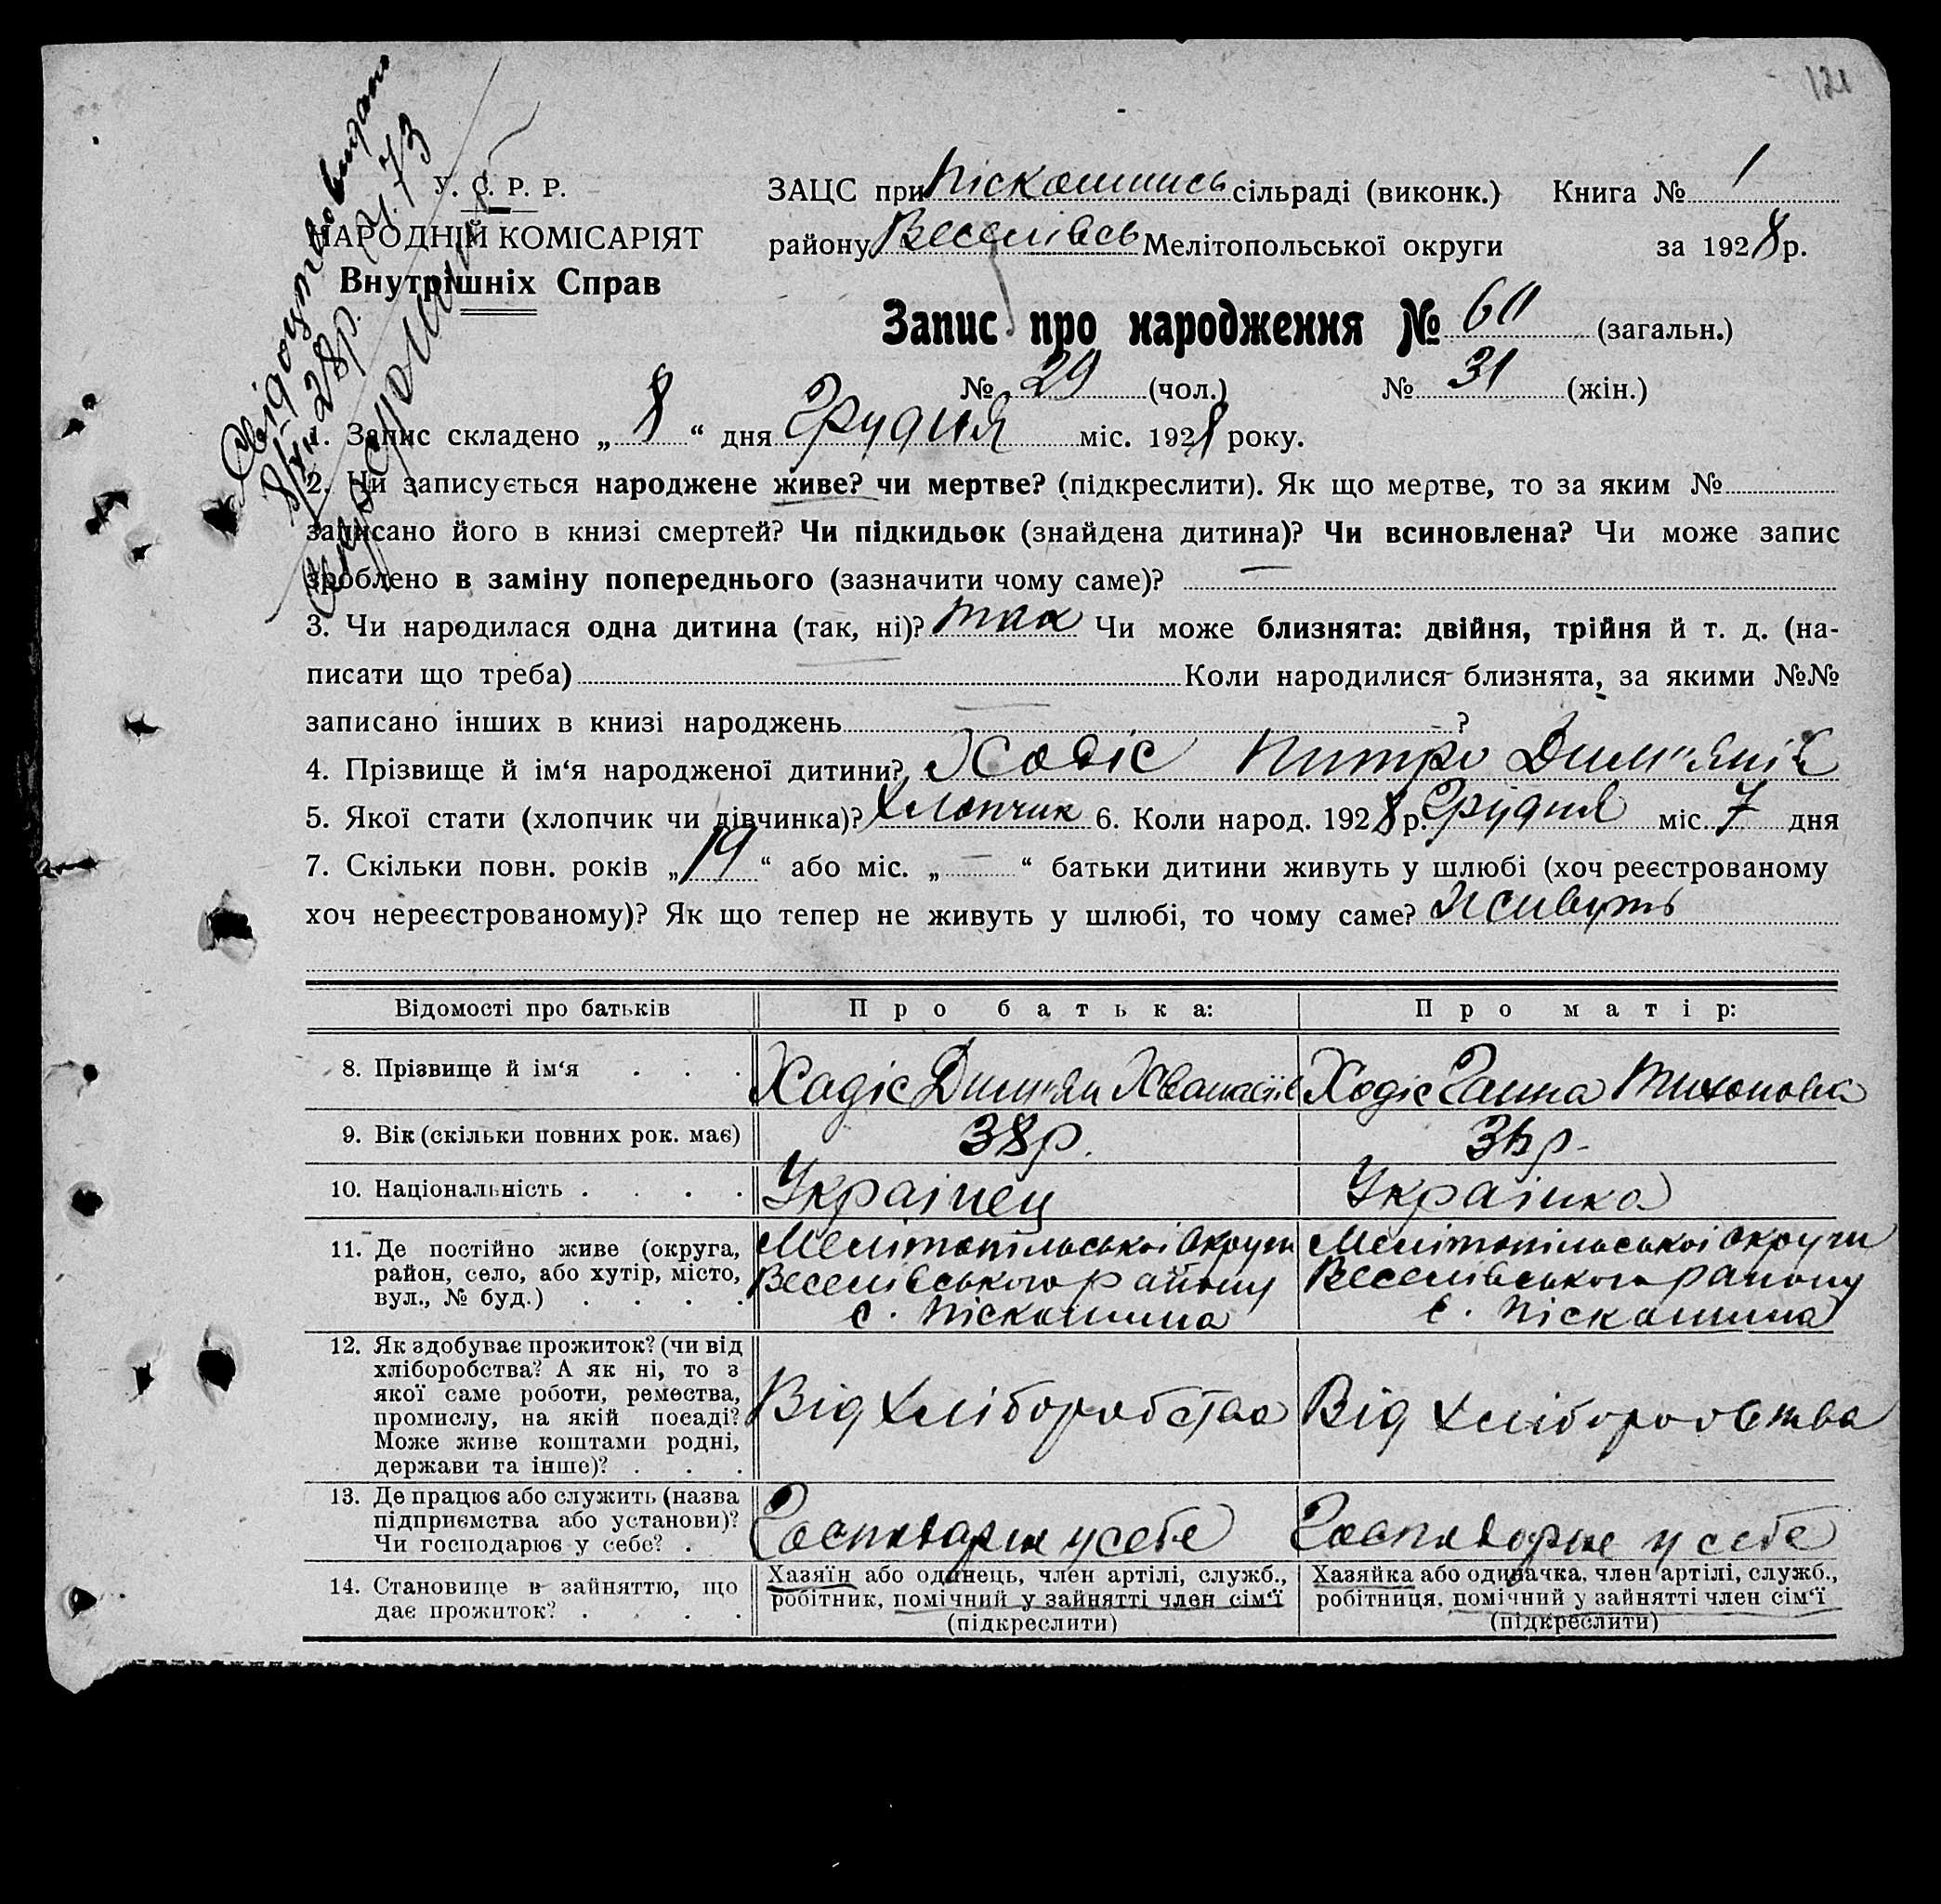 121
Свідоцтво видано
8/XII 28р. № 73
У. С. Р. Р.
НАРОДНІЙ КОМІСАРІЯТ
Внутрішніх Справ
ЗАЦС при Піскошинсь сільраді (виконк.) Книга № 1
району Веселівсь Мелітопольської округи за 1928 р.
Запис про народження № 60 (загальн.)
№ 29 (чол.) № 31 (жін.)
1. Запис складено „ 8 “ дня Грудня міс. 1928 року.
2. Чи записується народжене живе? чи мертве? (підкреслити). Як що мертве, то за яким №
записано його в книзі смертей? Чи підкидьок (знайдена дитина)? Чи всиновлена? Чи може запис
зроблено в заміну попереднього (зазначити чому саме)? —
3. Чи народилася одна дитина (так, ні)? так Чи може близнята: двійня, трійня й т. д. (на-
писати що треба) — Коли народилися близнята, за якими №№
записано інших в книзі народжень — ?
4. Прізвище й ім‘я народженої дитини? Ходіс Питро Дим"янів
5. Якої стати (хлопчик чи дівчинка)? Хлопчик 6. Коли народ. 1928 р. Грудня міс. 7 дня
7. Скільки повн. років „ 19 “ або міс. „ — “ батьки дитини живуть у шлюбі (хоч реєстрованому
хоч нереєстрованому)? Як що тепер не живуть у шлюбі, то чому саме? Живуть
Відомості про батьків Про батька: Про матір:
8. Прізвище й ім‘я . . . Ходіс Дим"ян Хванасіїв Ходіс Ганна Тихоновна
9. Вік (скільки повних рок. має) 38р. р.
10. Національність . . . . Українец Українка
11. Де постійно живе (округа, Мелітопільської Округи Мелітопільської Округи
район, село, або хутір, місто, Веселівського району Веселівського району
вул., № буд.) . . . . с. Піскошина с. Піскошина
12. Як здобуває прожиток? (чи від
хліборобства? А як ні, то з
якої саме роботи, ремества,
промислу, на якій посаді? Від Хліборобства Від Хліборобства
Може живе коштами родні,
держави та інше)? . . .
13. Де працює або служить (назва
підприємства або установи)? Господарює у себе Господарює у себе
Чи господарює у себе? .
14. Становище в зайняттю, що Хазяїн або одинець, член артілі, служб., Хазяйка або одиначка, член артілі, служб.,
дає прожиток? . . . . робітник, помічний у зайнятті член сім‘ї робітниця, помічний у зайнятті член сім‘ї
(підкреслити) (підкреслити)